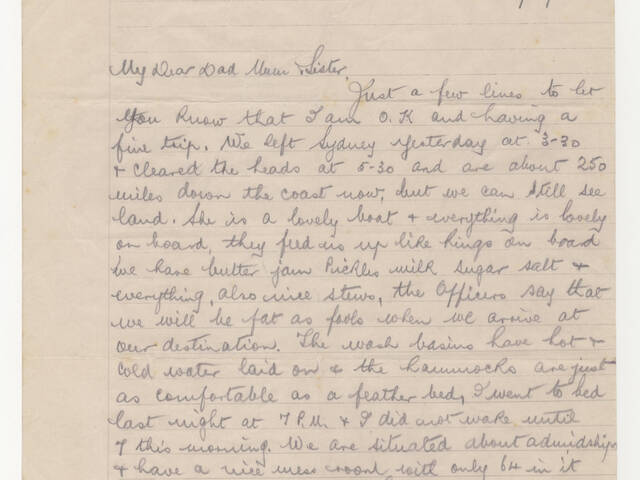 My Dear Dad Mum & Sister.
Just a few lines to let
you know that I am O.K and having a
fine trip. We left Sydney yesterday at 3-30
& cleared the heads at 5-30 and are about 250
miles down the coast now, but we can still see
land. She is a lovely boat & everything is lovely
on board, they feed us up like kings on board
we have butter jam Pickles milk sugar salt &
everything, also nice stews, the Officers say that
we will be fat as fools when we arrive at
our destination. The wash basins have hot &
cold water laid on & the hammocks are just
as comfortable as a feather bed, I went to bed
last night at 7 P.M. & I did not wake until
7 this morning. We are situated about admidships
& have a nice mess room with only 64 in it